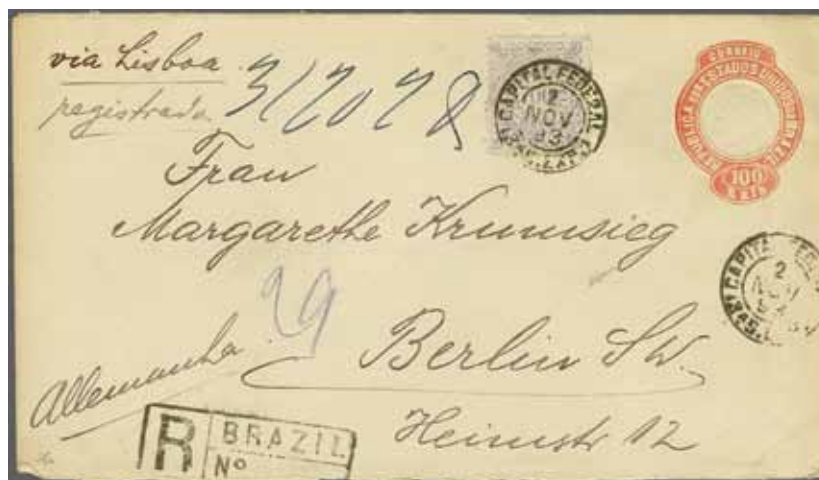 via Lisboa
registrada
CAPITAL FEDERAL
2
NOV
93
CORREIO
REPUBLICA DOS ESTADOS UNIDOS DO BRAZIL
100
REIS
Frau
Margarethe Krumsieg
CAPITAL FEDERAL
2
NOV
29
Berlin SW.
Allemanha
Heimstr 12
R
BRAZIL
Nº